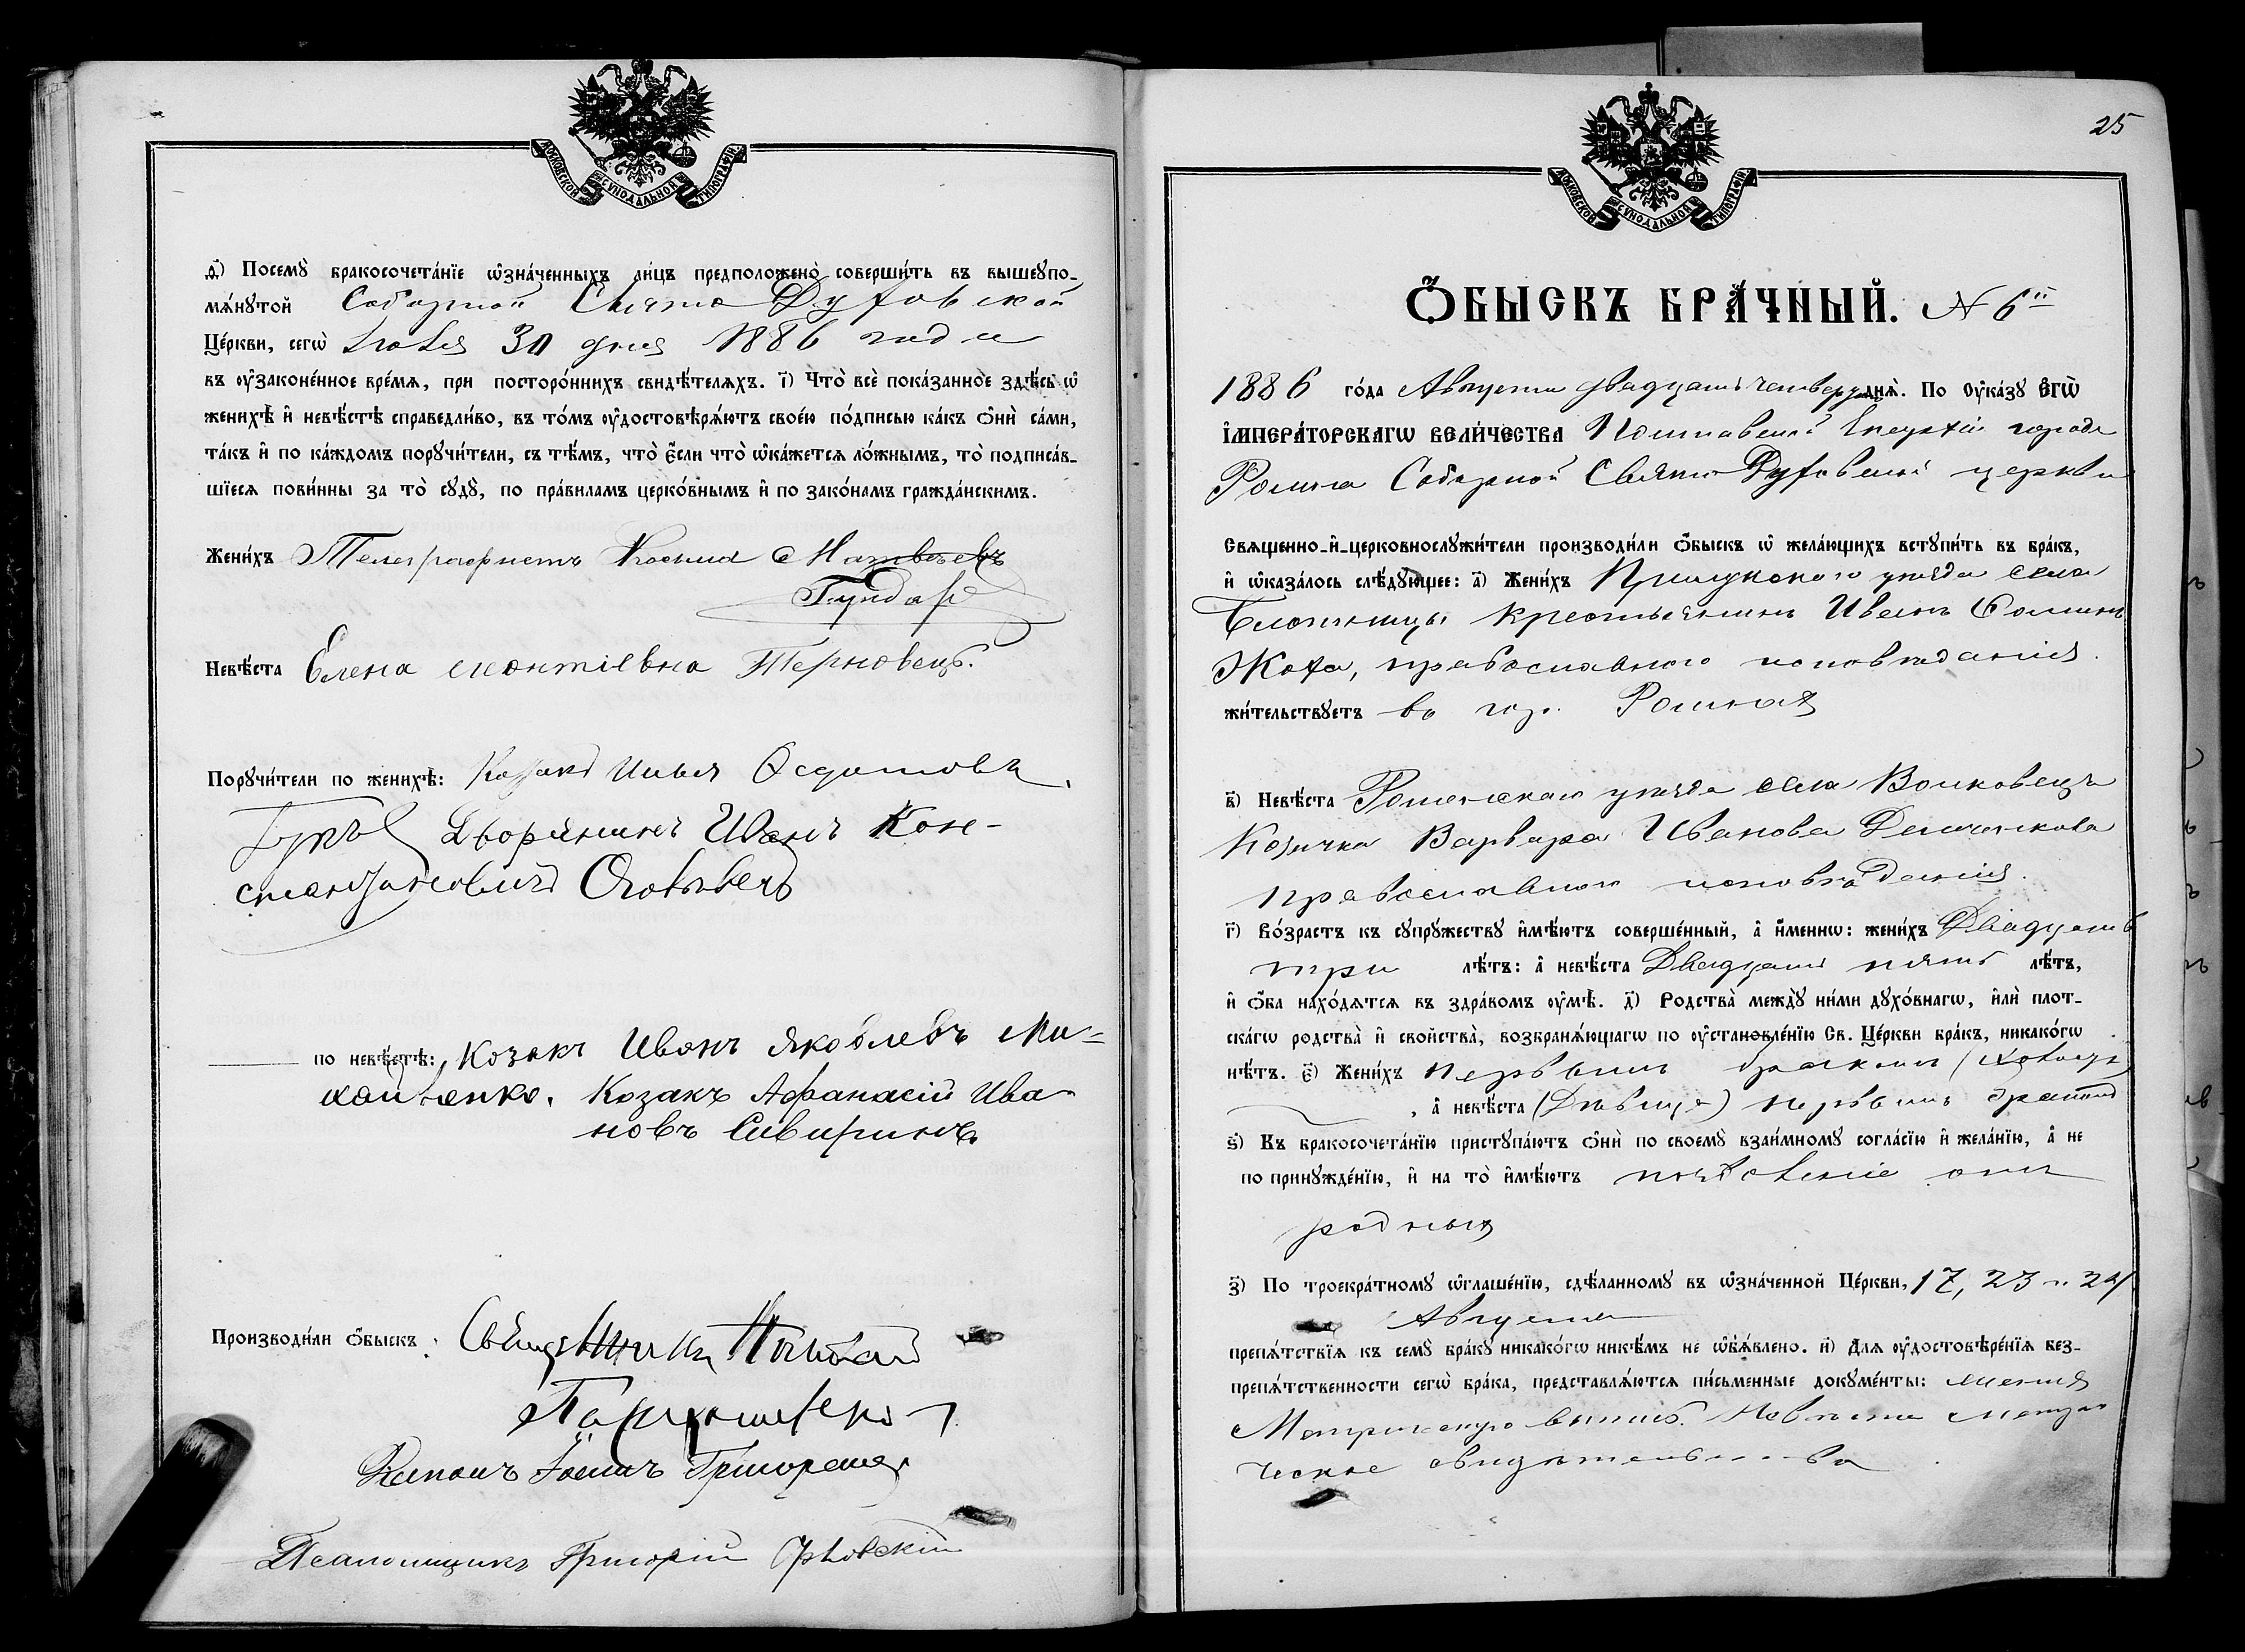 МОСКОВСКОЙ СѴНОДАЛЬНОЙ ТИПОГРАФІИ
д҃) Посемꙋ̀ бракосочета́нїе ѡ҆зна́ченныхъ ли́цъ предположено̀ соверши́ть въ вышеꙋпо-
мѧ́нꙋтой Соборной Свято Духовской
Це́ркви, сегѡ̀ 30 дня 1886 года
въ оу҆законе́нное вре́мѧ, при посторо́ннихъ свидѣ́телѧхъ. і҃) Что̀ всѐ пока́занное здѣ́сь ѡ҆
женихѣ̀ и҆ невѣ́стѣ справедли́во, въ то́мъ оу҆достовѣрѧ́ютъ свое́ю по́дписью ка́къ ѻ҆нѝ са́ми,
та́къ и҆ по ка́ждомъ порꙋчи́тели, съ тѣ́мъ, что̀ є҆́сли что̀ ѡ҆ка́жетсѧ ло́жнымъ, то̀ подписа́в-
шїесѧ пови́нны за то̀ сꙋдꙋ̀, по пра́виламъ церко́внымъ и҆ по зако́намъ гражда́нскимъ.
Жени́хъ Телеграфистъ Косьма Матвѣевъ
Гундар
Невѣ́ста Елена Леонтіевна Терновецъ.
Порꙋчи́тели по женихѣ̀: Козакъ Илья Осиповъ
Дворянинъ Иванъ Кон-
стантиновичъ
по невѣ́стѣ: Козакъ Иванъ Яковлевъ Ми-
хайленко. Козакъ Афанасій Ива-
новъ Сивиринъ
Производи́ли ѻ҆́быскъ: Священникъ
Діаконъ Григорій
Псаломщикъ Григорій Орловскій
25
МОСКОВСКОЙ СѴНОДАЛЬНОЙ ТИПОГРАФІИ
Ѻ҆́БЫСКЪ БРА́ЧНЫЙ. N 6й
1886 го́да Августа двадцать четверт днѧ̀. По оу҆ка́зꙋ Є҆гѡ̀
І҆мпера́торскагѡ вели́чества Полтавской Епархіи города
Ромна Соборной Свято Духовской церкви
Свѧщенно-и҆-церковнослꙋжи́тели производи́ли ѻ҆́быскъ ѡ҆ жела́ющихъ встꙋпи́ть въ бра́къ,
и҆ ѡ҆каза́лось слѣ́дꙋющее: а҃) Жени́хъ Прилукскаго уѣзда села
крестьянинъ Иванъ Фоминъ
Жоха, православнаго исповѣданія
жи́тельствꙋетъ въ гор. Ромнах
в҃) Невѣ́ста Роменскаго уѣзда села Волковецъ
Козачка Варвара Иванова Демченкова
православнаго исповѣданія.
г҃) Во́зрастъ къ сꙋпрꙋ́жествꙋ и҆мѣ́ютъ соверше́нный, а҆ и҆́меннѡ: жени́хъ Двадцать
три лѣ́тъ: а҆ невѣ́ста Двадцать пять лѣ́тъ,
и҆ ѻ҆́ба нахо́дѧтсѧ въ здра́вомъ оу҆мѣ̀. д҃) Родства̀ междꙋ̀ ни́ми дꙋхо́внагѡ, и҆лѝ плот-
ска́гѡ родства̀ и҆ сво́йства̀, возбранѧ́ющагѡ по оу҆становле́нїю Св. Це́ркви бра́къ, никако́гѡ
нѣ́тъ. є҃) Жени́хъ первымъ бракомъ (холостъ)
, а҆ невѣ́ста (Дѣвица) первымъ бракомъ
ѕ҃) Къ бракосочета́нїю пристꙋпа́ютъ ѻ҆нѝ по своемꙋ̀ взаи́мномꙋ согла́сїю и҆ жела́нїю, а҆ не
по принꙋжде́нїю, и҆ на то̀ и҆мѣ́ютъ позволеніе отъ
родныхъ
з҃) По троекра́тномꙋ ѡ҆глаше́нїю, сдѣ́ланномꙋ въ ѡ҆зна́ченной Це́ркви, 17, 23 и 24
Августа
препѧ́тствїѧ къ семꙋ̀ бра́кꙋ никако́гѡ никѣ́мъ не ѡ҆б̾ѧ́влено. и҃) Длѧ оу҆достовѣре́нїѧ без-
препѧ́тственности сегѡ̀ бра́ка, представлѧ́ютсѧ пи́сьменные докꙋме́нты: жениха
Метрическую выпись. Невѣста метри-
ческое свидѣтельство